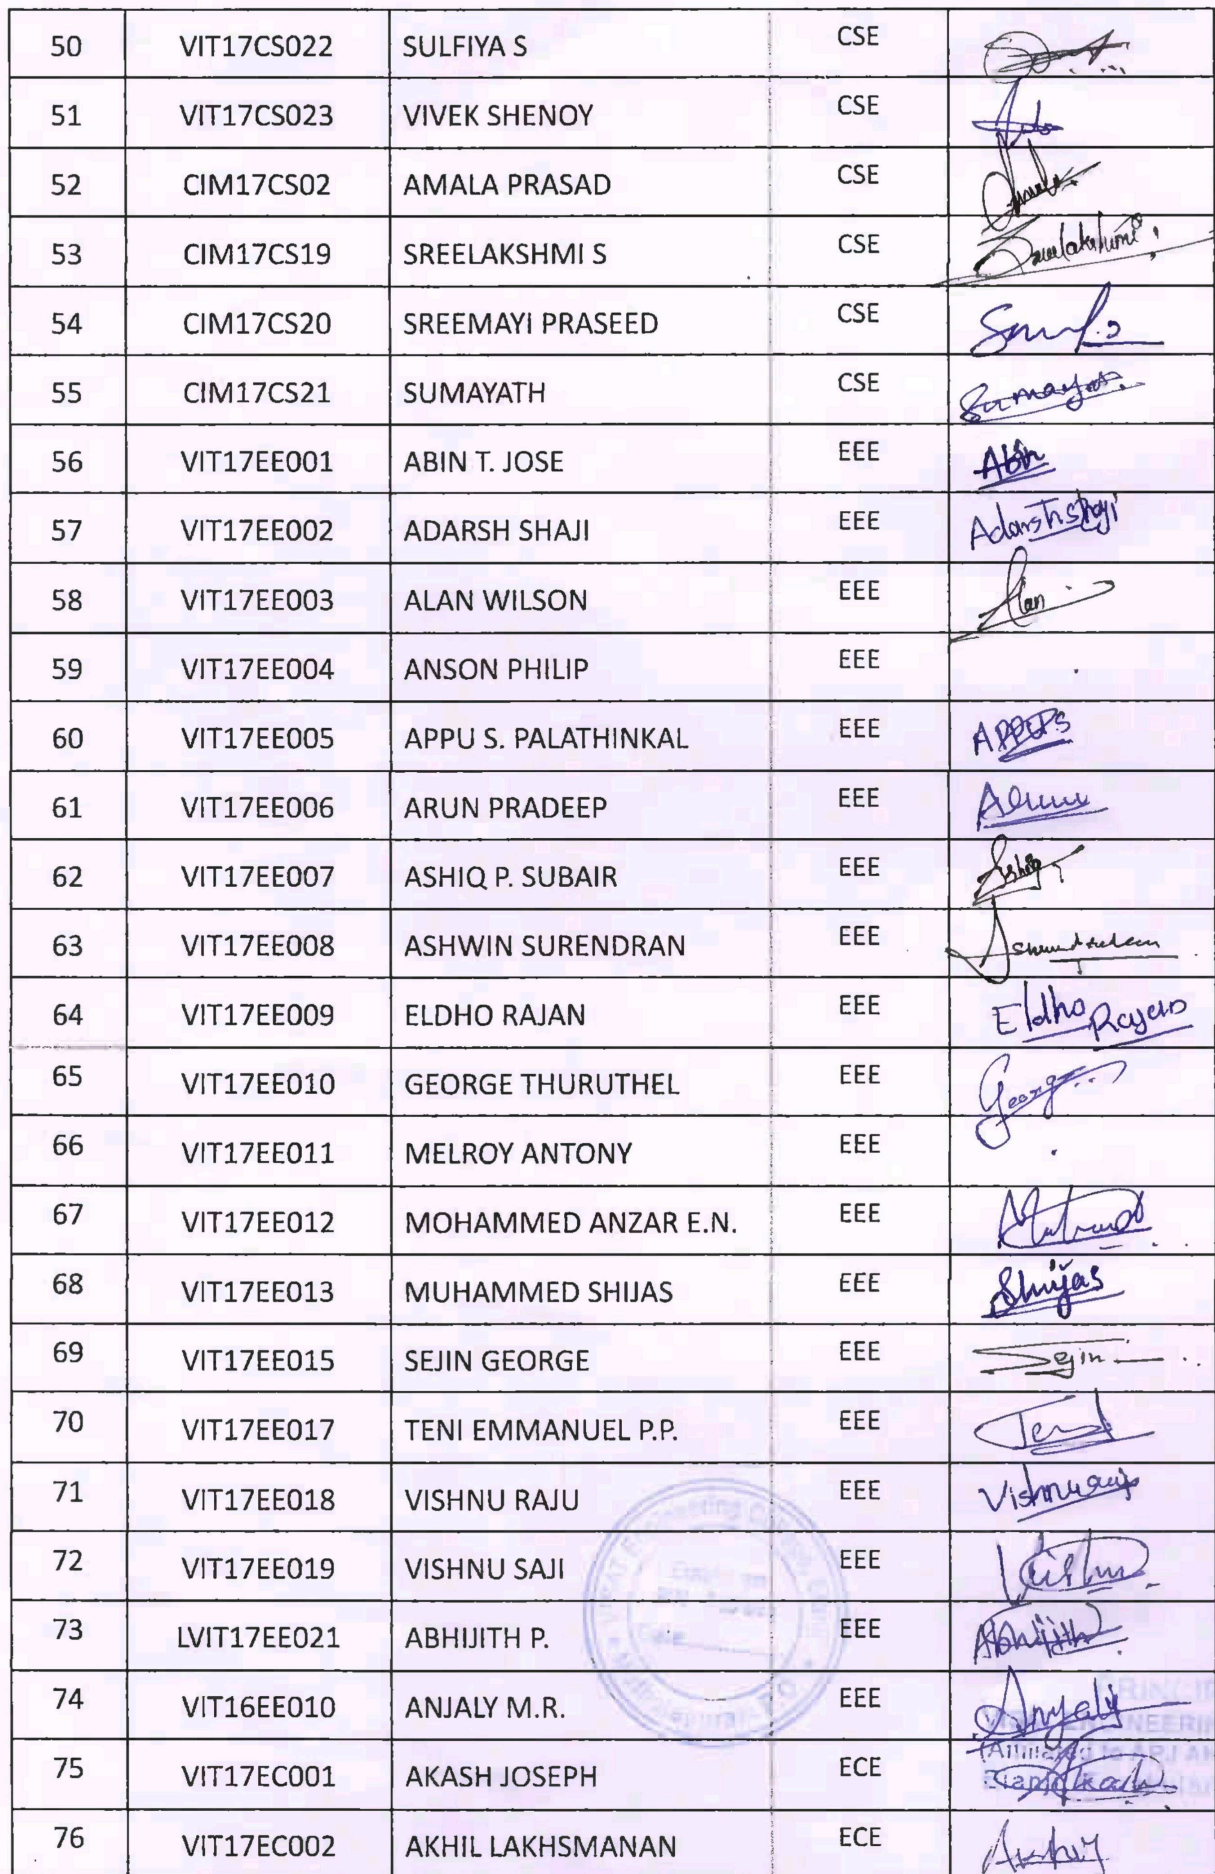 50 VIT17CS022 SULFIYA S CSE
51 VIT17CS023 VIVEK SHENOY CSE
52 CIM17CS02 AMALA PRASAD CSE Amala
53 CIM17CS19 SREELAKSHMI S CSE Sreelakshmi
54 CIM17CS20 SREEMAYI PRASEED CSE
55 CIM17CS21 SUMAYATH CSE
56 VIT17EE001 ABIN T. JOSE EEE Abin
57 VIT17EE002 ADARSH SHAJI EEE Adarsh Shaji
58 VIT17EE003 ALAN WILSON EEE Alan
59 VIT17EE004 ANSON PHILIP EEE
60 VIT17EE005 APPU S. PALATHINKAL EEE
61 VIT17EE006 ARUN PRADEEP EEE Arun
62 VIT17EE007 ASHIQ P. SUBAIR EEE Ashiq
63 VIT17EE008 ASHWIN SURENDRAN EEE
64 VIT17EE009 ELDHO RAJAN EEE Eldho Rajan
65 VIT17EE010 GEORGE THURUTHEL EEE George
66 VIT17EE011 MELROY ANTONY EEE
67 VIT17EE012 MOHAMMED ANZAR E.N. EEE
68 VIT17EE013 MUHAMMED SHIJAS EEE Shijas
69 VIT17EE015 SEJIN GEORGE EEE Sejin
70 VIT17EE017 TENI EMMANUEL P.P. EEE
71 VIT17EE018 VISHNU RAJU EEE Vishnu
72 VIT17EE019 VISHNU SAJI EEE Vishnu
73 LVIT17EE021 ABHIJITH P. EEE Abhijith
74 VIT16EE010 ANJALY M.R. EEE Anjaly
75 VIT17EC001 AKASH JOSEPH ECE
76 VIT17EC002 AKHIL LAKHSMANAN ECE